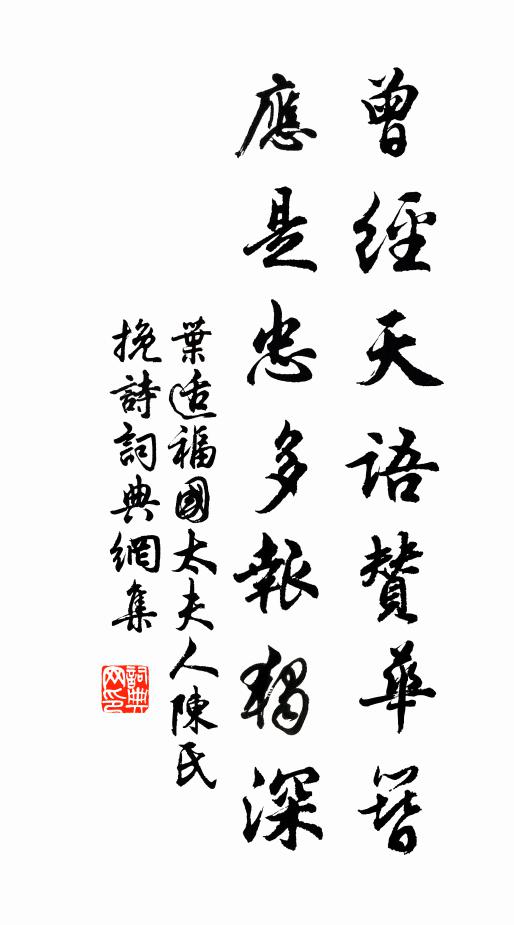 曾經天語賛華簪
應是忠多報獨深
葉适福國太夫人陳氏
挽詩詞典網集
詞典
网印